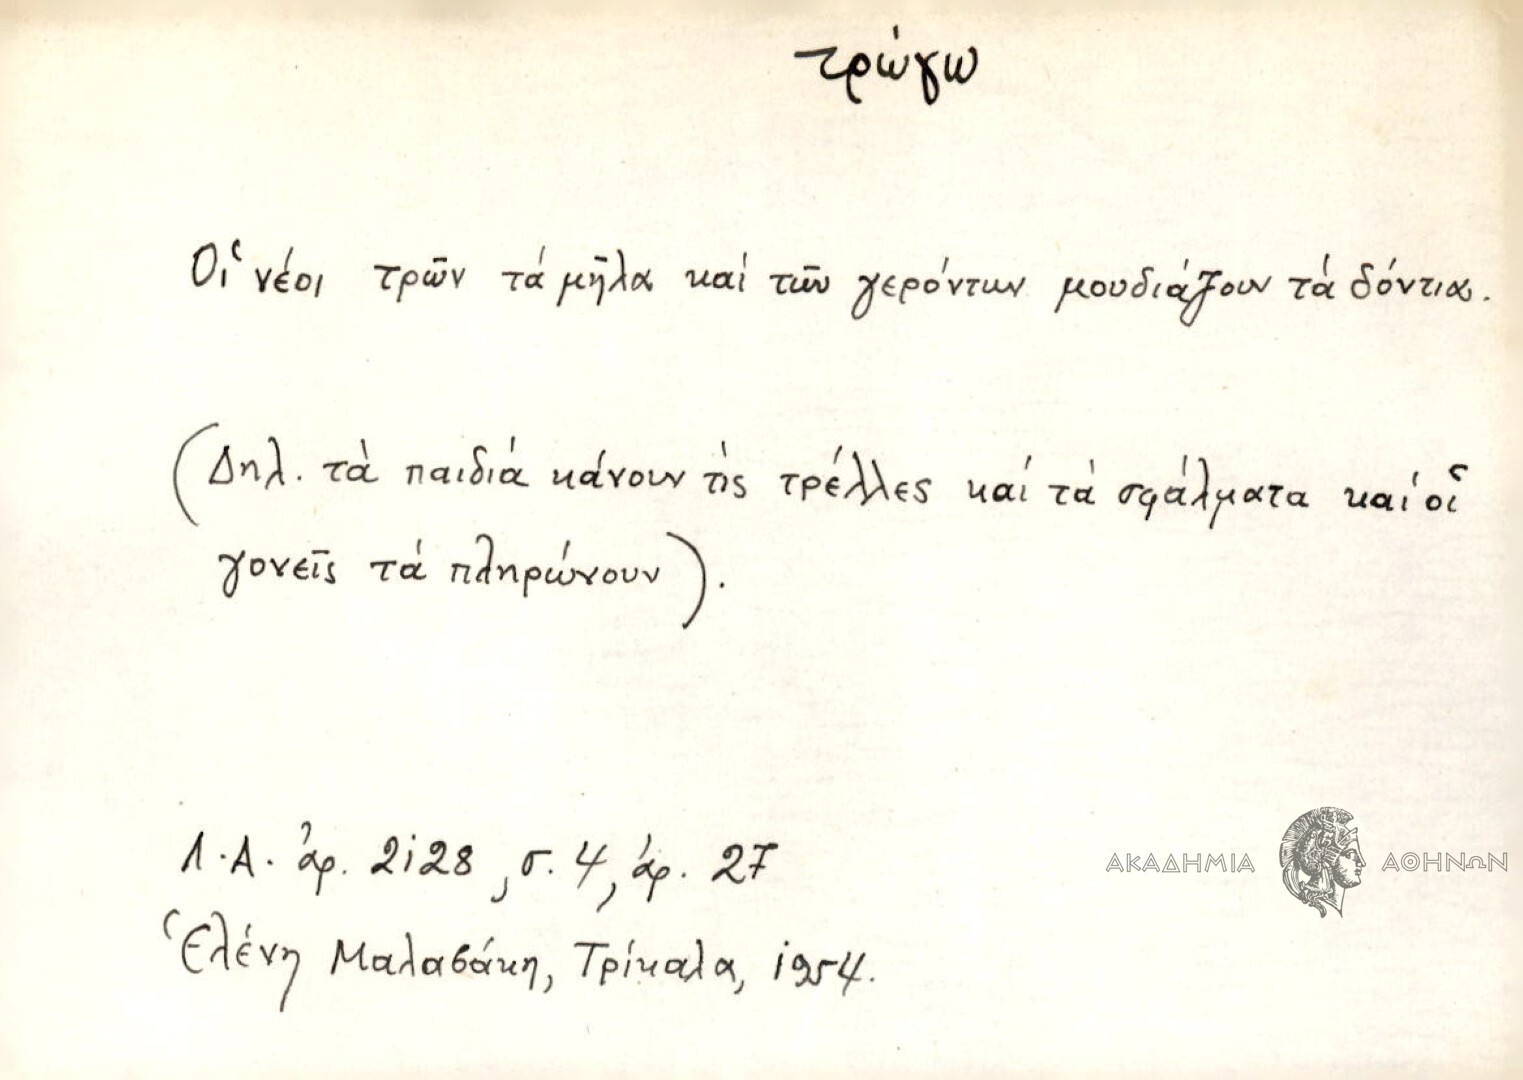 τρώγω
Οἱ νέοι τρῶν τά μῆλα καί τῶν γερόντων μουδιάζουν τά δόντια.
(Δηλ. τὰ παιδιά κάνουν τὶς τρέλλες καί τὰ σφάλματα καί οἱ
γονεῖς τά πληρώνουν).
Λ.Α. ἀρ. 2128, σ. 4, ἀρ. 27
Ἑλένη Μαλαβάκη, Τρίκαλα, 1954.
ΑΚΑΔΗΜΙΑ ΑΘΗΝΩΝ